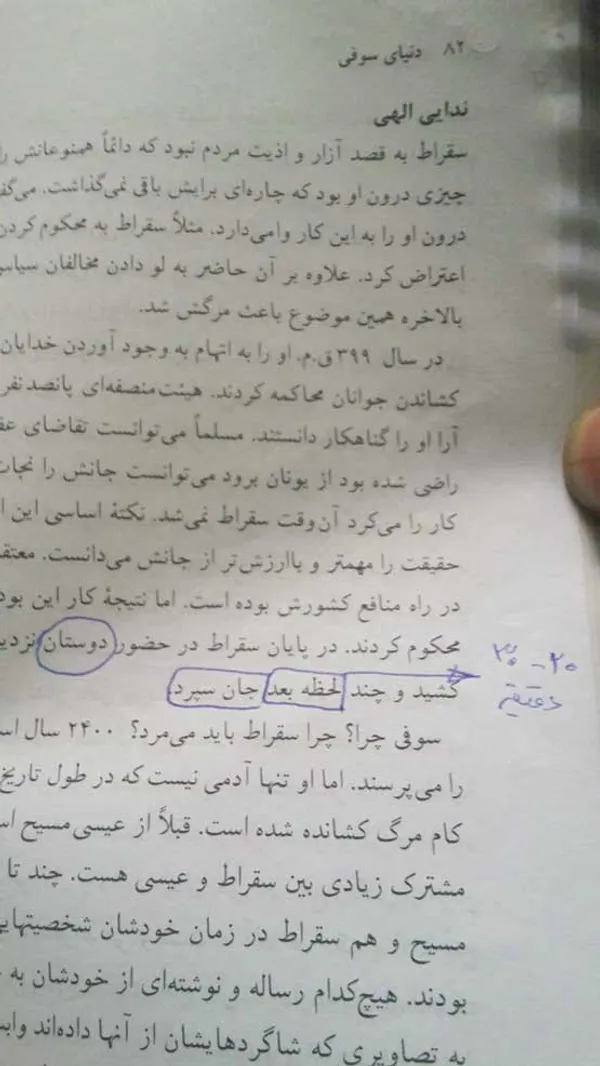 ۸۲ دنیای سوفی
ندایی الهی
سقراط به قصد آزار و اذیت مردم نبود که دائماً همنوعانش را
چیزی درون او بود که چاره‌ای برایش باقی نمی‌گذاشت.
درون او را به این کار وامی‌دارد. مثلاً سقراط به محکوم کردن
اعتراض کرد. علاوه بر آن حاضر به لو دادن مخالفان
بالاخره همین موضوع باعث مرگش شد.
در سال ۳۹۹ ق.م. او را به اتهام به وجود آوردن خدایان
کشاندن جوانان محاکمه کردند. هیئت‌منصفه‌ای پانصدنفر
آرا او را گناهکار دانستند. مسلماً می‌توانست تقاضای
راضی شده بود از یونان برود می‌توانست جانش را
کار را می‌کرد آن‌وقت سقراط نمی‌شد. نکتهٔ اساسی این
حقیقت را مهمتر و باارزش‌تر از جانش می‌دانست.
در راه منافع کشورش بوده است. اما نتیجهٔ کار این بود
محکوم کردند. در پایان سقراط در حضور دوستان
۲۰ - ۳۰
کشید و چند لحظه بعد جان سپرد.
دقیقه
سوفی چرا؟ چرا سقراط باید می‌مرد؟ ۲۴۰۰ سال
را می‌پرسند. اما او تنها آدمی نیست که در طول تاریخ
کام مرگ کشانده شده است. قبلاً از عیسی‌مسیح
مشترک زیادی بین سقراط و عیسی هست. چند تا
مسیح و هم سقراط در زمان خودشان
بودند. هیچ‌کدام رساله و نوشته‌ای از خودشان به
به تصاویری که شاگردهایشان از آنها داده‌اند